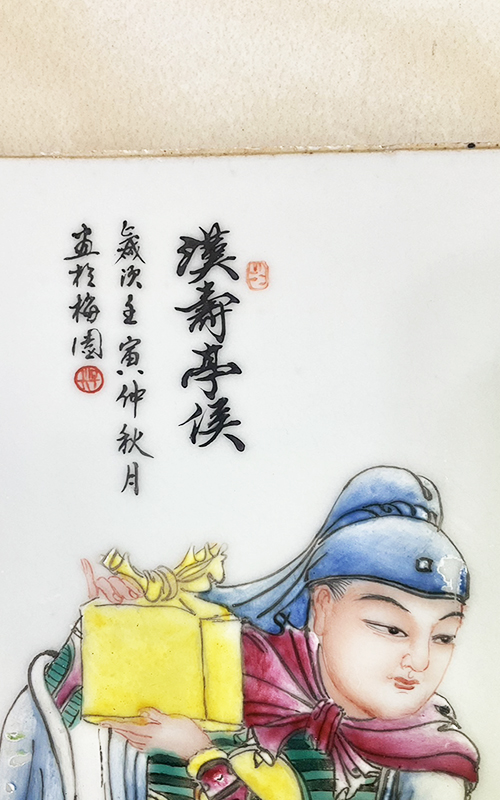 漢壽亭侯
歲次壬寅仲秋月
画於梅園